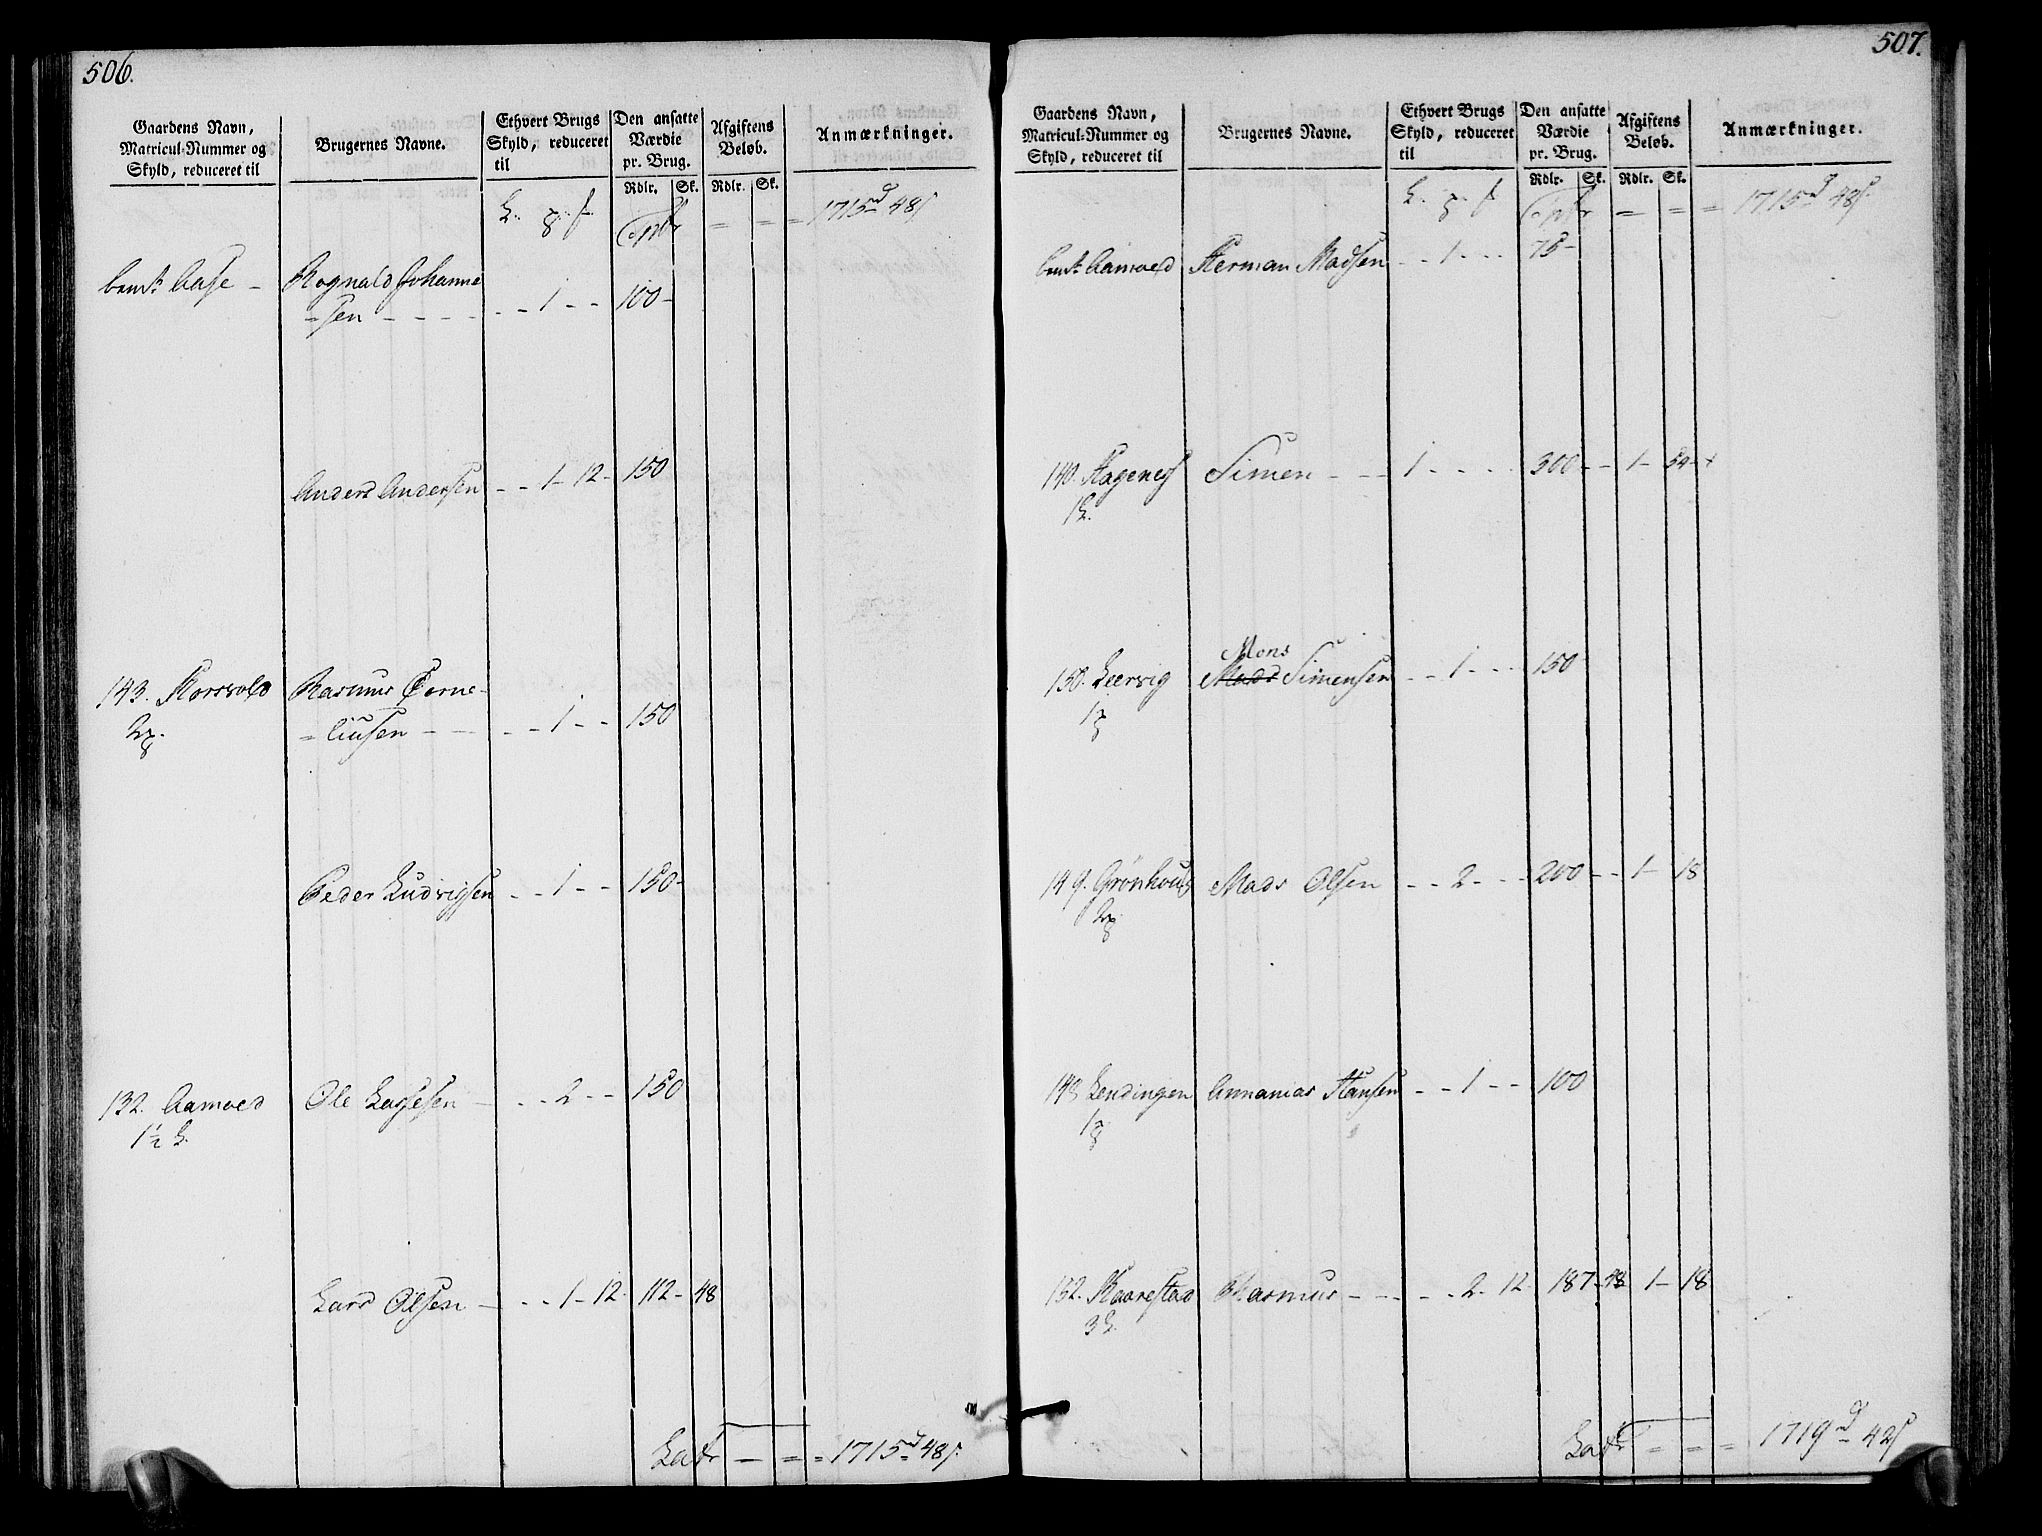 506.
Gaardens Navn, Matricul-Nummer og Skyld, reduceret til
Brugernes Navne.
Ethvert Brugs Skyld, reduceret til
Den ansatte Værdie pr. Brug.
Afgiftens Beløb.
Anmærkninger.
Rdlr. Sk. Rdlr. Sk.
= = = 1715 48
Aase - Rognald Johanne
=sen - - - - 1 - - 100 -
Anders Andersen - - 1 - 12 - 150
143. Korsvold Rasmus Corne-
=liusen - - - - 1 - - 150
Peder Ludvigsen - - 1 - - 150 -
132. Aamoed Ole Lassesen - - - 2 - - 150
1½
Lars Olsen - - - 1 - 12 112 - 48
Latr - = = 1715 48
507.
Gaardens Navn, Matricul-Nummer og Skyld, reduceret til
Brugernes Navne.
Ethvert Brugs Skyld, reduceret til
Den ansatte Værdie pr. Brug.
Afgiftens Beløb.
Anmærkninger.
Rdlr. Sk. Rdlr. Sk.
= = = 1715 48
Aamoed Herman Madsen - - 1 - - - 75 -
140. Hagenes Simen - - - 1 - - - 300 - - 1 - 54
Mons
150. Leervig Mads Simensen - - 1 - - - 150
149. Grønhoug Mads Olsen - - 2 - - - 200 - - 1 - 18
143 Lendingen Annanias Hansen - - 1 - - - 100
132. Kaarestad Rasmus - - - - - 2 - 12 187 - 48 1 - 18
3
Latr = = = 1719 42